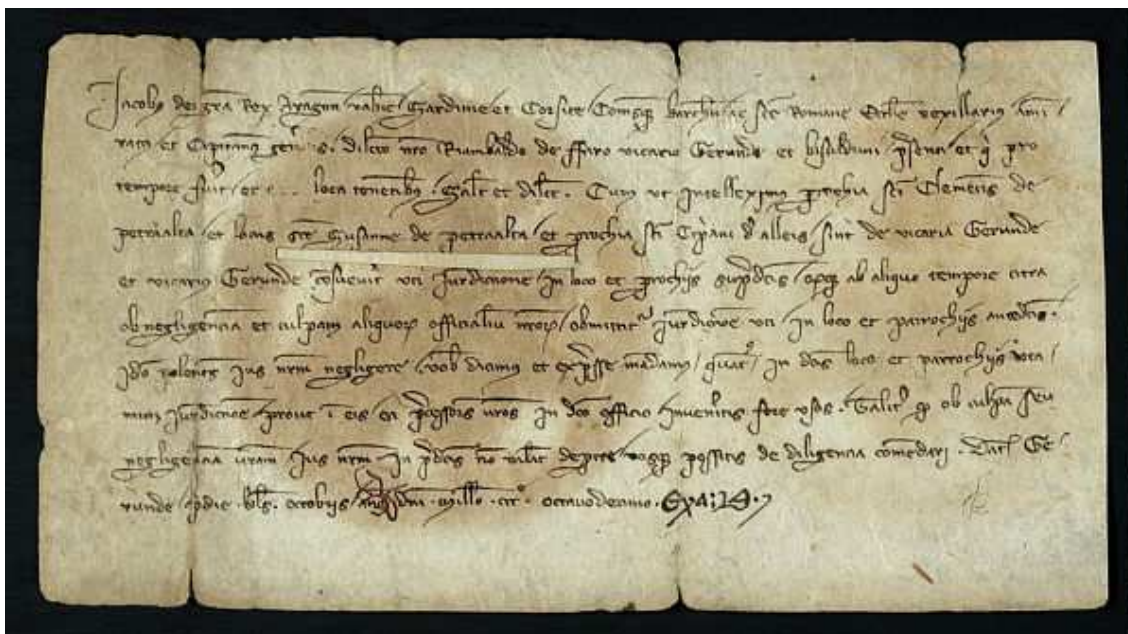 Jacobus dei gra Rex Aragon Valne Sardinie et Corsice Comesq barchn ac sce Romane Eccle vexillarius ami
ratus et Capitaneus gen's. dilcto nro de ffaro vicario Gerunde et bisulduni psenti et q pro
tempore fuit et loca tenentibus salt et dilct. Cum ut intellexim prochia sci Clementis de
petraalta et locus sce Susanne de petraalta et prochia sci Cipani d alleis sint de vicaria Gerunde
et vicarius Gerunde uti jurdiccione in loco et prochijs supdcis ab aliquo tempore citra
ob negligencia et culpam aliquor officialiu nror jurdiccioe uti in loco et parrochijs
Ido nolentes Jus nrm negligere vob dicimus et expsse mandamus quat in dcis loco et parrochijs uta
mini jurdiccioe prout i eis pcessors vros in dco officio inveneritis fore usos. Talit q ob culpa seu
negligencia vram jus nrm in pdcis no depire possitis de diligencia comendari. Dat Ge
runde pdie kls octobris anno dni millo ccc octavodecimo.